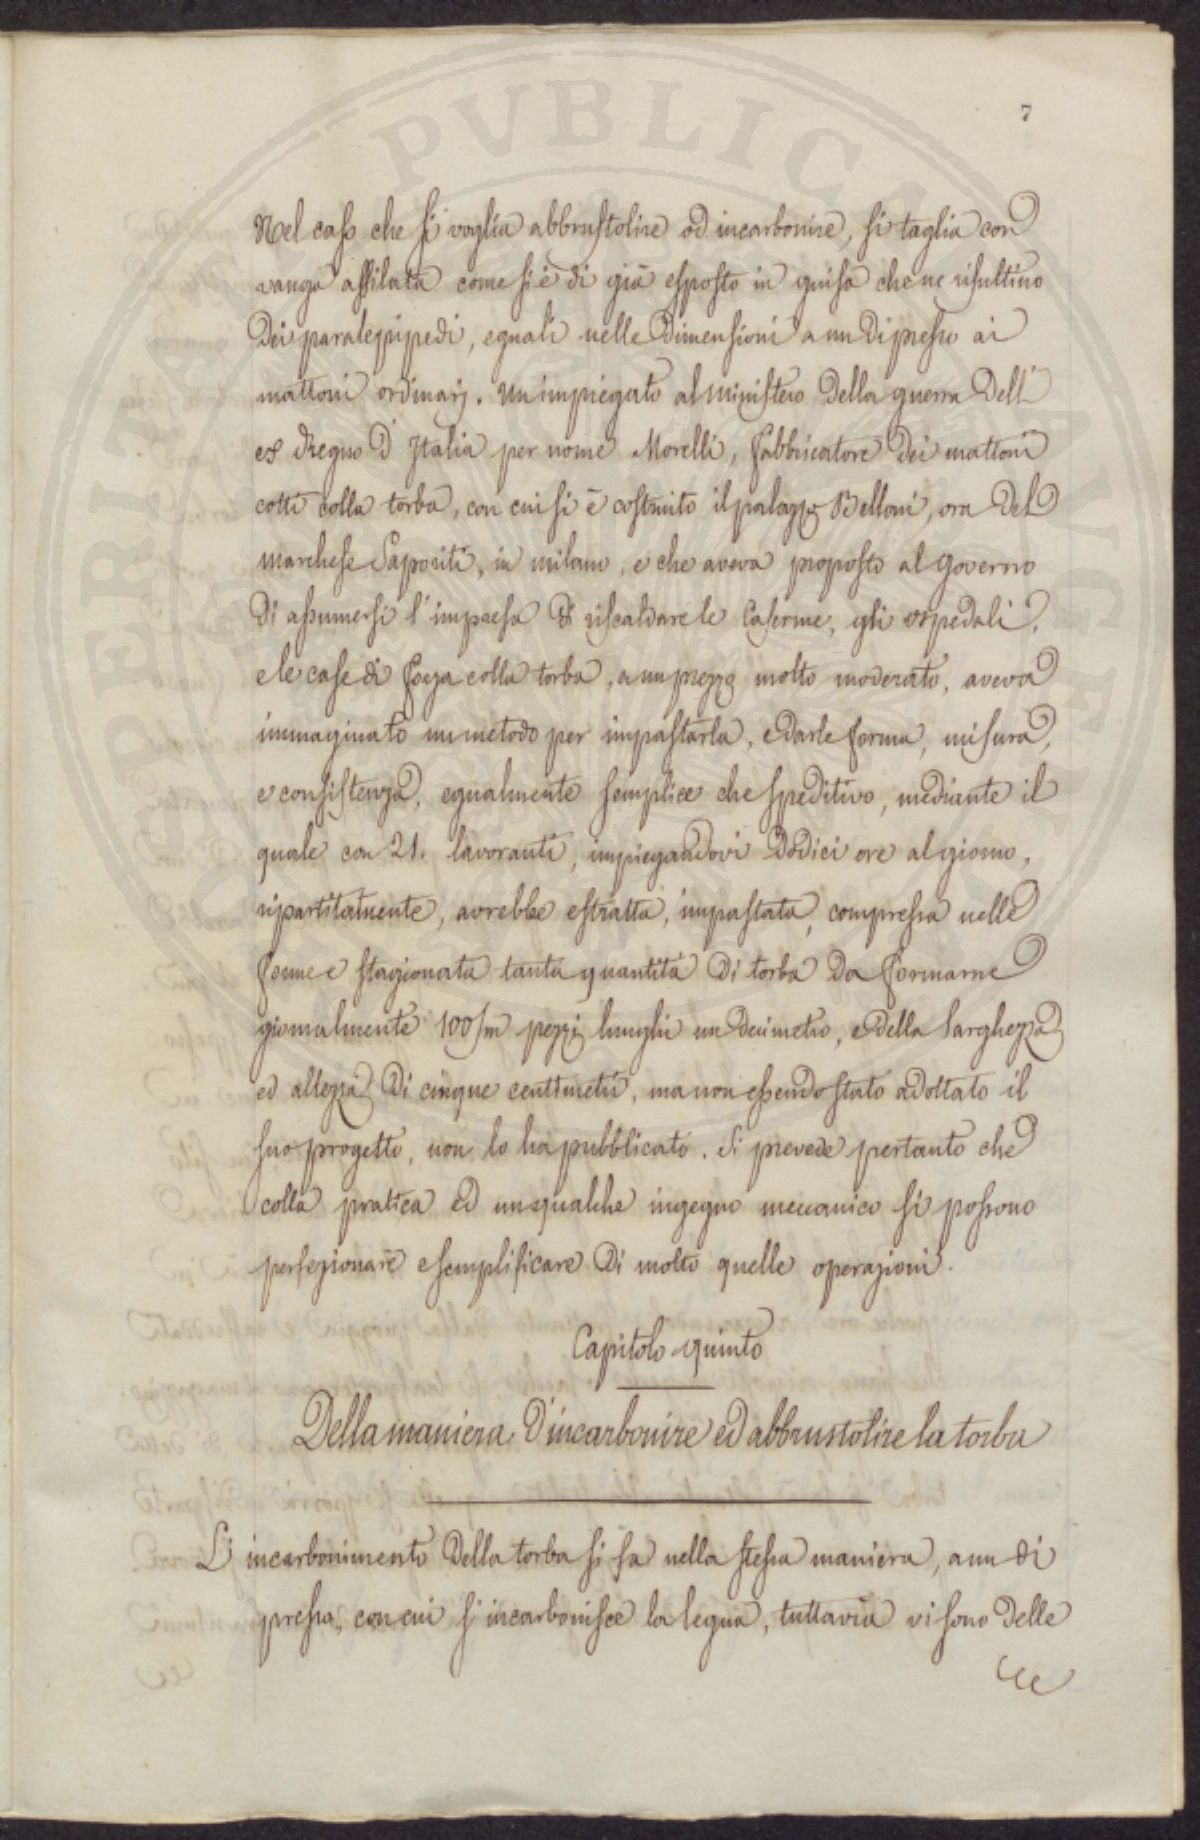 PERITATI PVBLICAE AVGENDAE
7
Nel caso che si voglia abbrustolire od incarbonire, si taglia con
vanga affilata come si è di già esposto in guisa che ne risultino
dei paralepipedi, eguali nelle dimensioni a un dipresso ai
mattoni ordinarj. Un impiegato al ministero della guerra dell'
ex Regno d'Italia per nome Morelli, fabbricatore dei mattoni
cotti colla torba, con cui si è costruito il palazzo Belloni, ora del
marchese Saporiti, in milano, e che aveva proposto al governo
di assumersi l'impresa di riscaldare le Caserme, gli ospedali,
e le case di forza colla torba, a un prezzo molto moderato, aveva
immaginato un metodo per impastarla, e darle forma, misura,
e consistenza, egualmente semplice che speditivo, mediante il
quale con 21. lavoranti, impiegandovi dodici ore al giorno,
ripartitamente, avrebbe estratta, impastata, compressa nelle
forme e stagionata tanta quantità di torba da formarne
giornalmente 100/m pezzi lunghi un decimetro, e della larghezza
ed altezza di cinque centimetri, ma non essendo stato adottato il
suo progetto, non lo ha pubblicato. Si prevede pertanto che
colla pratica ed un qualche ingegno meccanico si possono
perfezionare e semplificare di molto quelle operazioni.
Capitolo quinto
Della maniera d'incarbonire ed abbrustolire la torba
L'incarbonimento della torba si fa nella stessa maniera, a un di
presso, con cui s'incarbonisce la legna, tuttavia vi sono delle